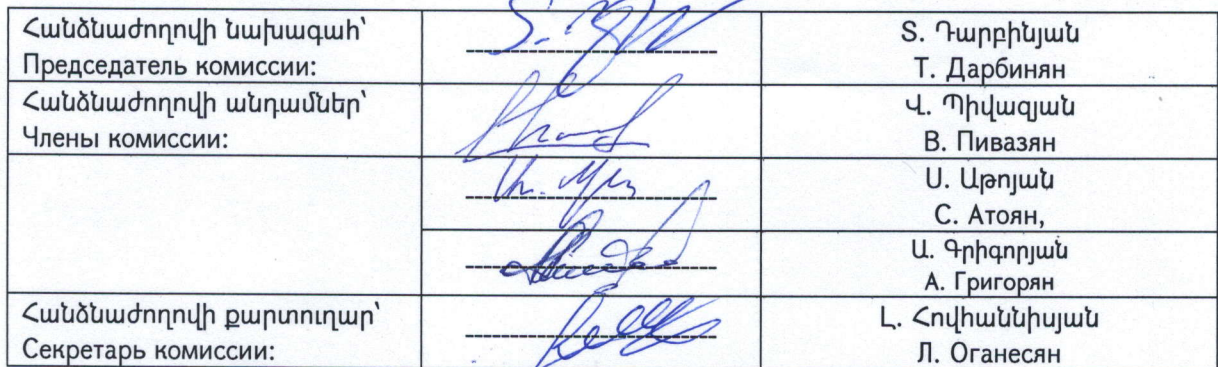 Հանձնաժողովի նախագահ՝
Председатель комиссии:
Տ. Դարբինյան
Т. Дарбинян
Հանձնաժողովի անդամներ՝
Члены комиссии:
Վ. Պիվազյան
В. Пивазян
Ս. Աթոյան
С. Атоян,
Ա. Գրիգորյան
А. Григорян
Հանձնաժողովի քարտուղար՝
Секретарь комиссии:
Լ. Հովհաննիսյան
Л. Оганесян